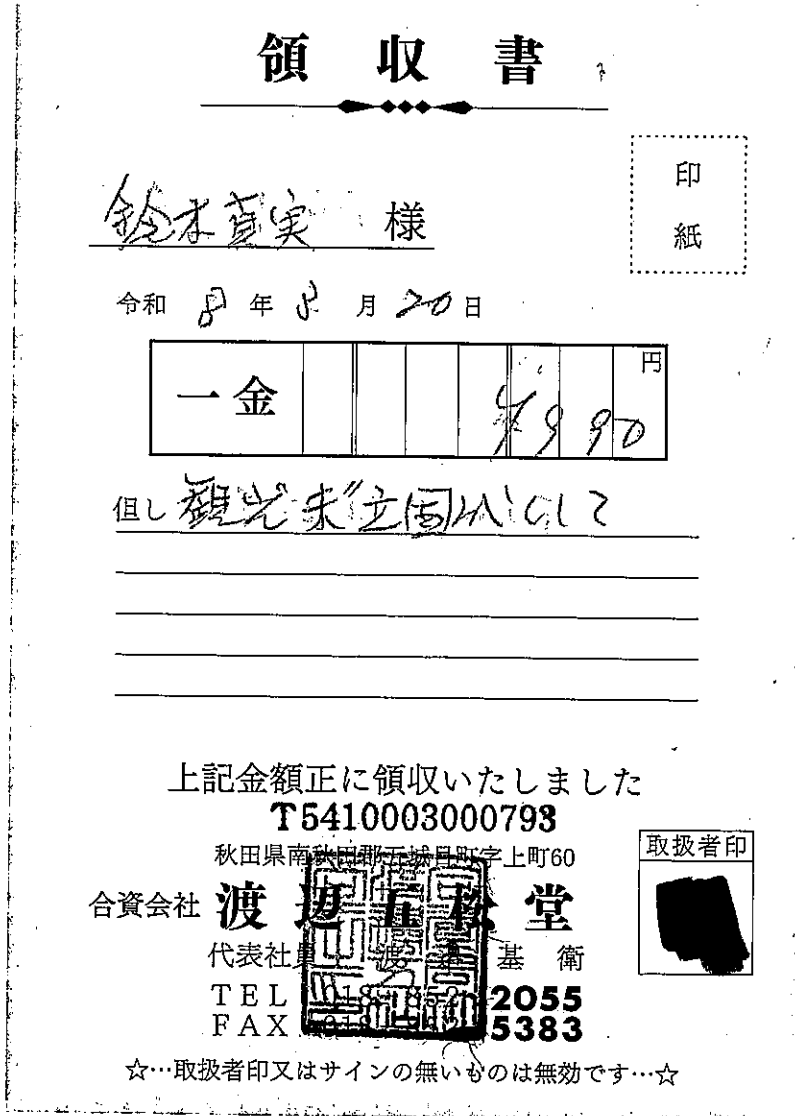 領収書
印紙
鈴木真実 様
令和 8 年 3 月 20 日
一金 ¥1990 円
但し 観光未立国 として
上記金額正に領収いたしました
T5410003000793
秋田県南秋田郡五城目町字上町60
取扱者印
合資会社 渡邉五松堂
代表社員 渡邉基衛
TEL 018-852-2055
FAX 018-852-5383
☆…取扱者印又はサインの無いものは無効です…☆